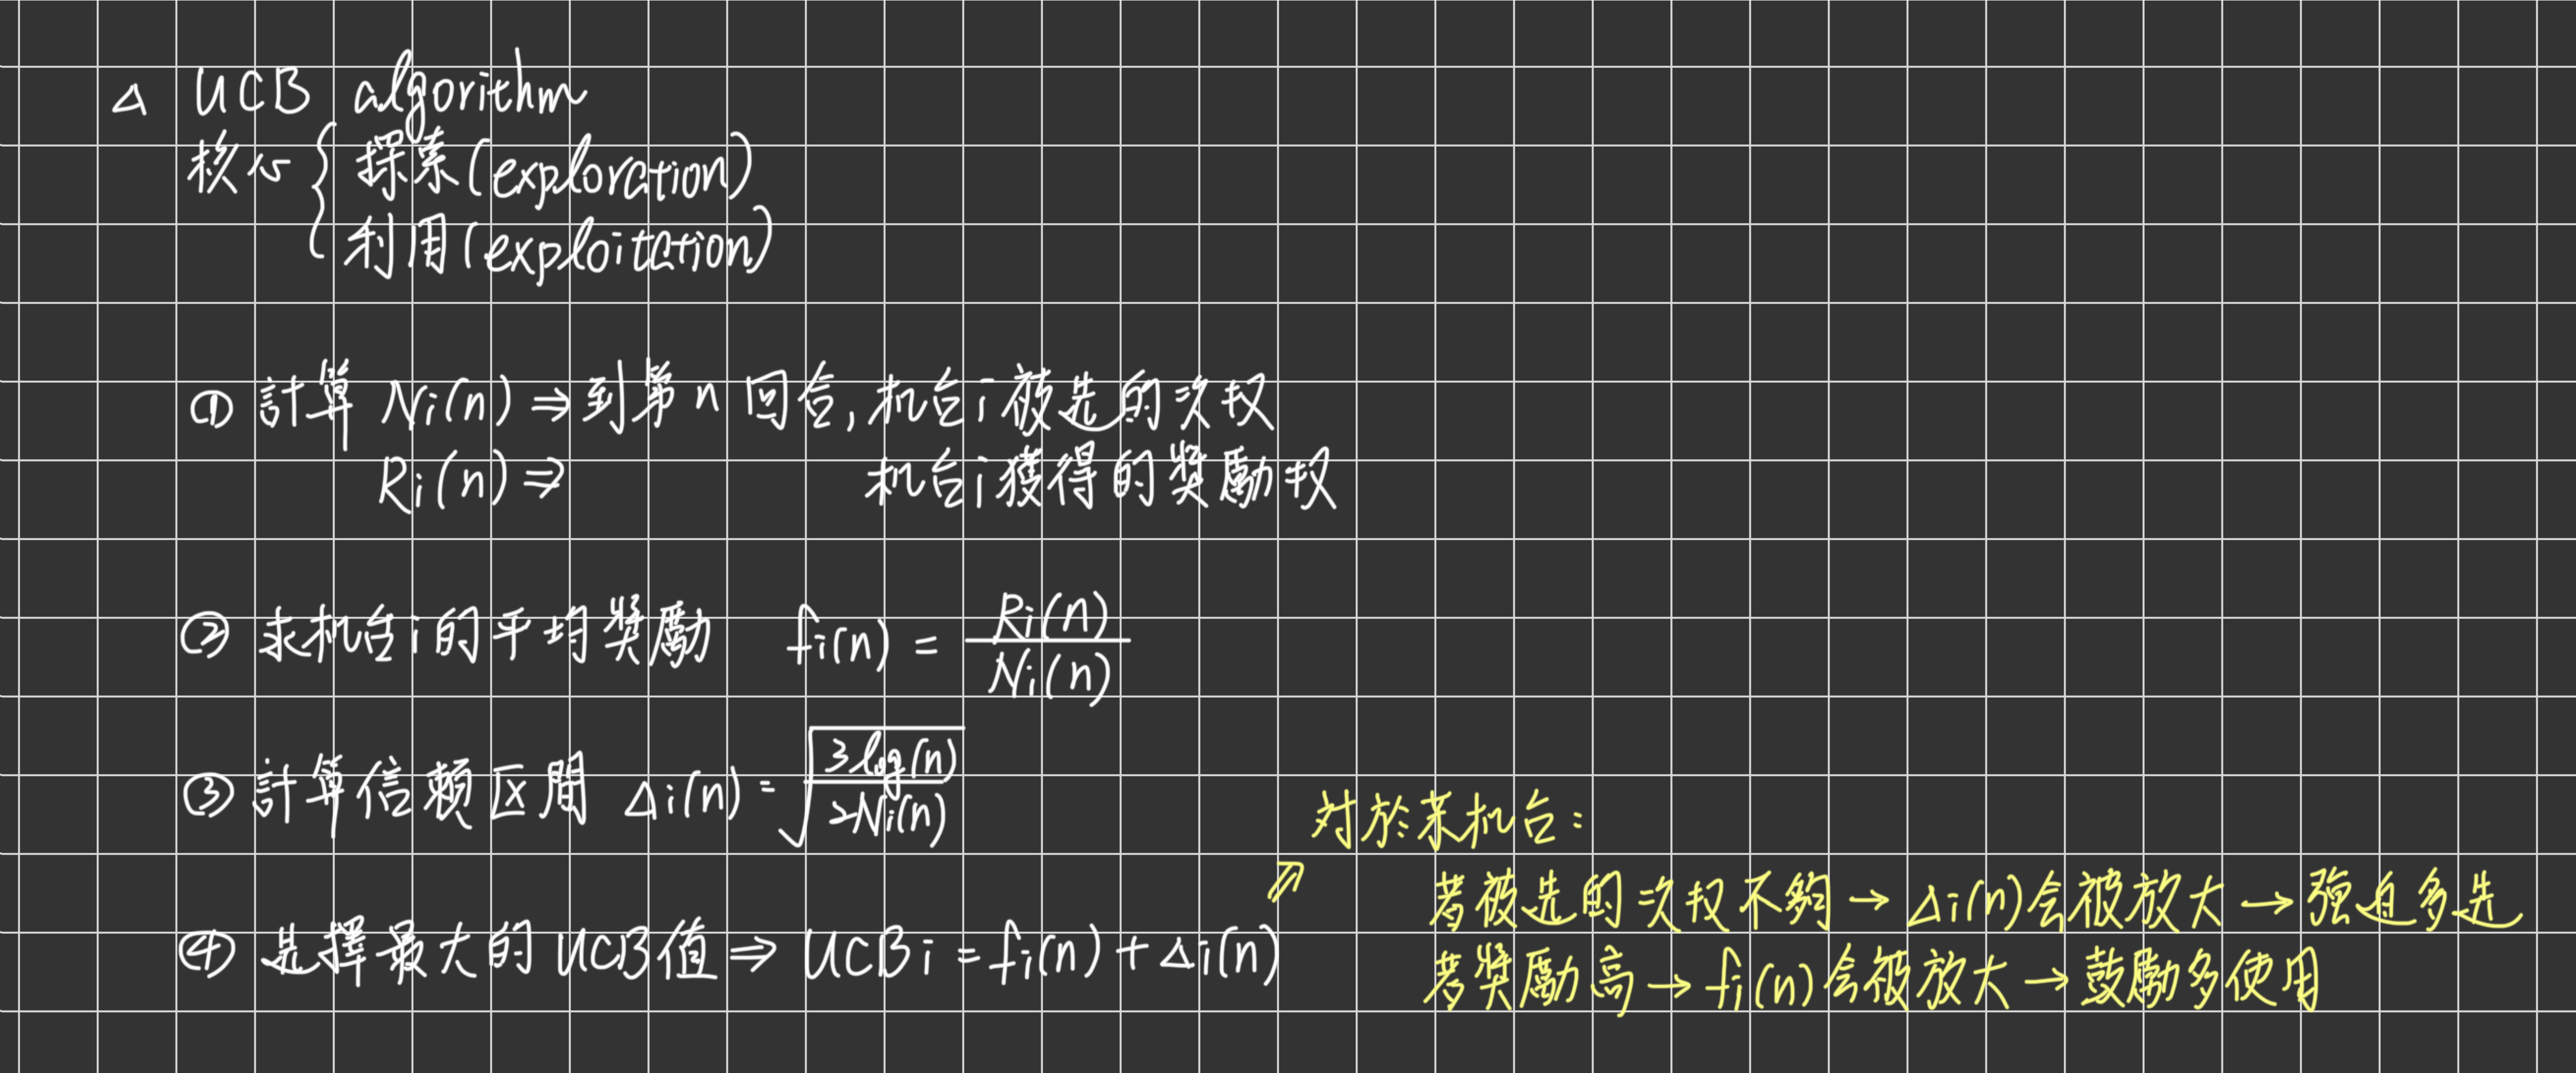 △ UCB algorithm
核心 { 探索(exploration)
利用(exploitation)
① 計算 Ni(n) ⇒ 到第 n 回合, 机台 i 被选的次权
Ri(n) ⇒ 机台 i 獲得的獎勵权
② 求机台 i 的平均獎勵 fi(n) = Ri(n) / Ni(n)
③ 計算信賴区間 Δi(n) = √(3log(n) / 2Ni(n))
④ 选擇最大的 UCB值 ⇒ UCBi = fi(n) + Δi(n)
⇗ 対於某机台:
若被选的次权不夠 → Δi(n) 会被放大 → 強迫多选
若獎勵高 → fi(n) 会被放大 → 鼓勵多使用